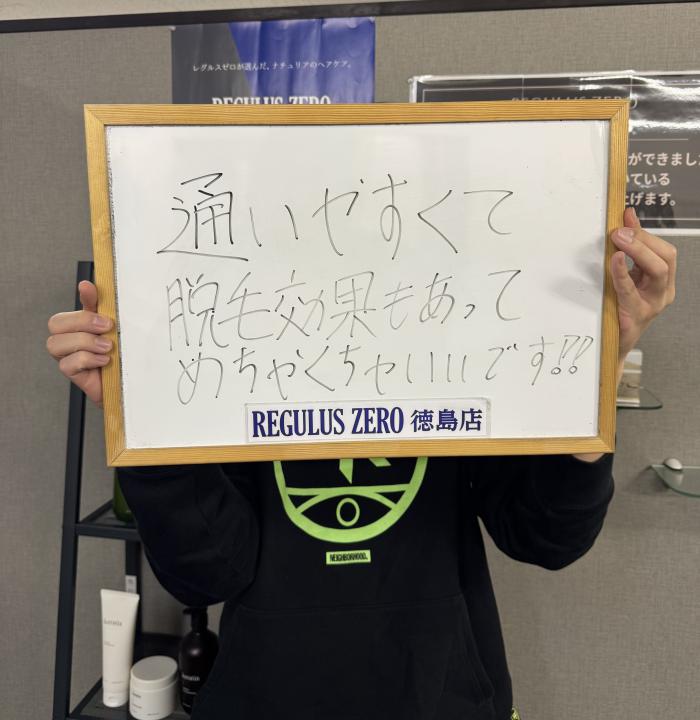 レグルスゼロが選んだ、ナチュリアのヘアケア。
REGULUS ZERO
REGULUS ZERO
ができまし
いている
上げます。
通いやすくて
脱毛効果もあって
めちゃくちゃいいです!!
REGULUS ZERO 徳島店
NEIGHBORHOOD.